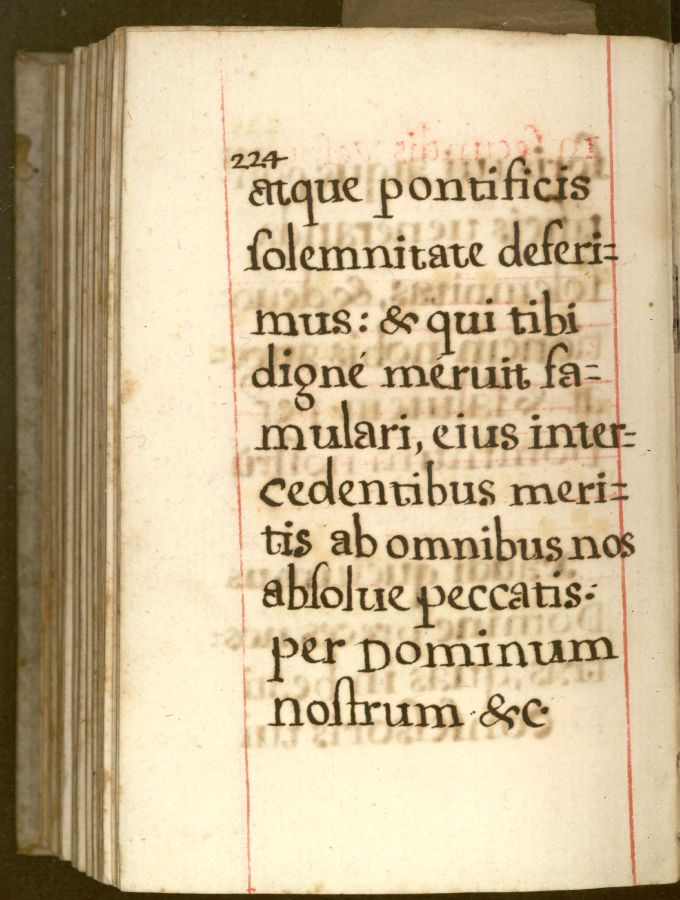 224
atque pontificis
solemnitate deferi=
mus: & qui tibi
digné méruit fa=
mulari, eius inter=
cedentibus meri=
tis ab omnibus nos
absolue peccatis.
per Dominum
nostrum &c.